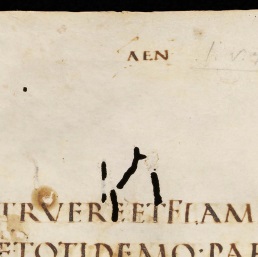 AEN
TRVEREETFLAM
ETOTIDEMO·PAR